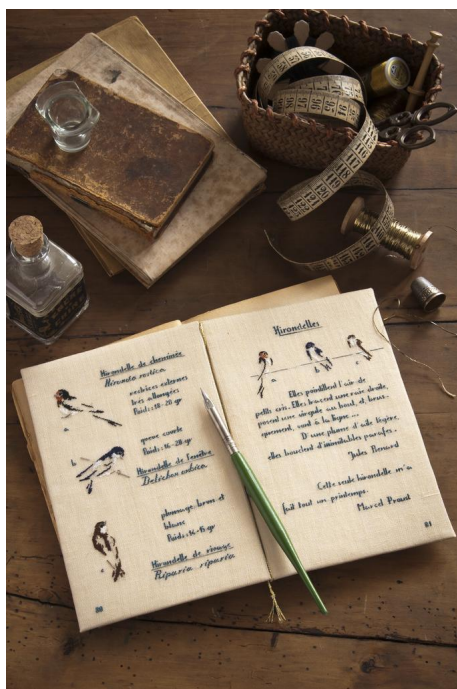 Hirondelle de cheminée
Hirundo rustica
rectrices externes
très allongées
Poids : 18-20 gr
a
queue courte
Poids : 16-20 gr
b
Hirondelle de fenêtre
Delichon urbica
plumage brun et
blanc
Poids : 14-15 gr
c
Hirondelle de rivage
Riparia riparia
80
Hirondelles
a b c
Elles pointillent l'air de
petits cris. Elles tracent une raie droite,
posent une virgule au bout, et, brus-
quement, vont à la ligne...
D'une plume d'aile légère,
elles bouclent d'inimitables parafes.
Jules Renard
Cette seule hirondelle m'a
fait tout un printemps.
Marcel Proust
81